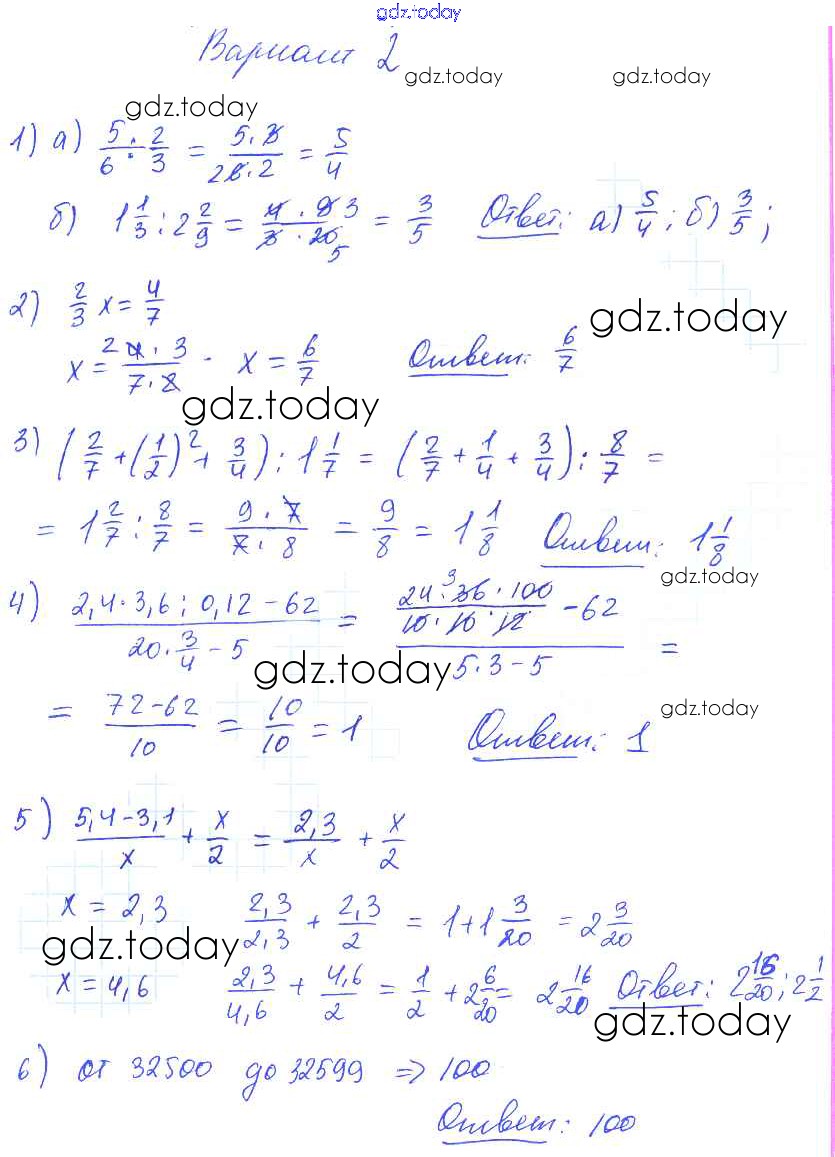 gdz.today
Вариант 2
gdz.today gdz.today
gdz.today
1) а) 5/6 : 2/3 = 5·3/2 6·2 = 5/4
б) 1 1/3 : 2 2/9 = 4·9 3/3·20 5 = 3/5 Ответ: а) 5/4; б) 3/5;
2) 2/3 x = 4/7
gdz.today
x = 2 4·3/7·2 · x = 6/7 Ответ: 6/7
gdz.today
3) (2/7 + (1/2)² + 3/4) : 1 1/7 = (2/7 + 1/4 + 3/4) : 8/7 =
= 1 2/7 : 8/7 = 9·7/7·8 = 9/8 = 1 1/8 Ответ: 1 1/8
gdz.today
4) (2,4·3,6 : 0,12 - 62)/(20·3/4 - 5) = (24·3 36·100/10·10·12 - 62)/(5·3 - 5) =
gdz.today
= 72-62/10 = 10/10 = 1 Ответ: 1
gdz.today
5) 5,4-3,1/x + x/2 = 2,3/x + x/2
x = 2,3 2,3/2,3 + 2,3/2 = 1 + 1 3/20 = 2 3/20
gdz.today
x = 4,6 2,3/4,6 + 4,6/2 = 1/2 + 2 6/20 = 2 16/20 Ответ: 2 16/20; 2 1/2
gdz.today
6) от 32500 до 32599 => 100
Ответ: 100